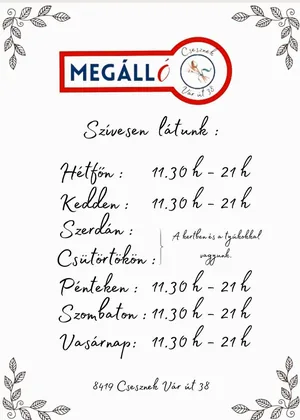 MEGÁLLÓ
Csesznek
Vár út 38
Szívesen látunk :
Hétfőn : 11.30 h - 21 h
Kedden : 11.30 h - 21 h
Szerdán :
A kertben és a tyúkokkal
vagyunk.
Csütörtökön :
Pénteken : 11.30 h - 21 h
Szombaton : 11.30 h - 21 h
Vasárnap: 11.30 h - 21 h
8419 Csesznek Vár út 38